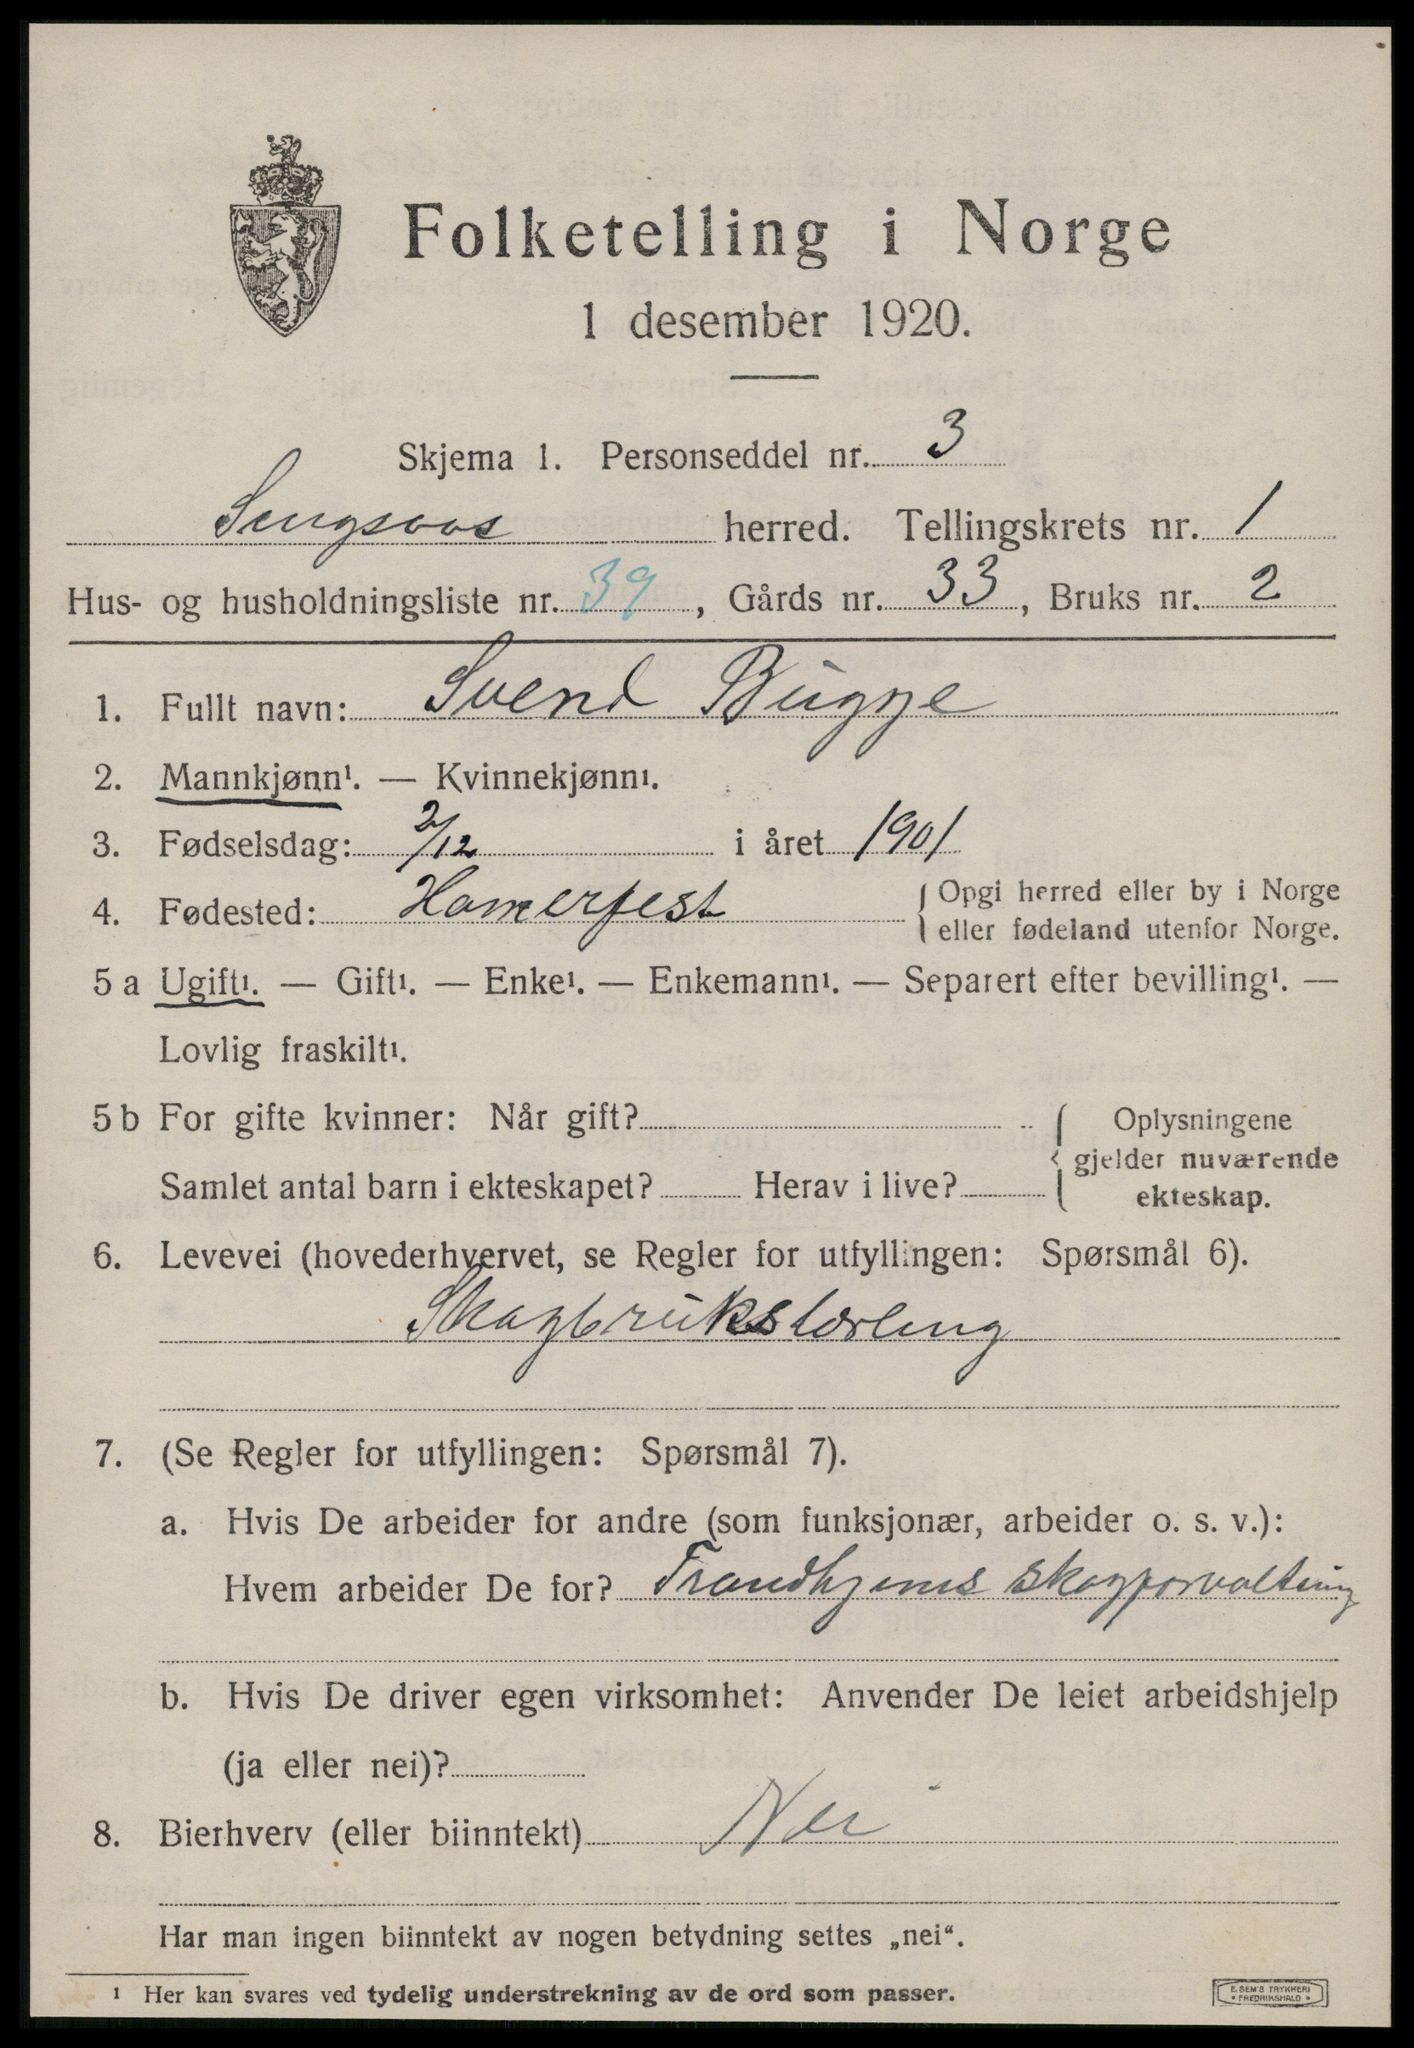 Folketelling i Norge
1 desember 1920.
Skjema 1. Personseddel nr. 3
Sengsaas herred. Tellingskrets nr. 1
Hus- og husholdningsliste nr. 39, Gårds nr. 33, Bruks nr. 2
1. Fullt navn: Svend Bugge
2. Mannkjønn¹. — Kvinnekjønn¹.
3. Fødselsdag: 2/12 i året 1901
4. Fødested: Hamerfest { Opgi herred eller by i Norge
eller fødeland utenfor Norge.
5 a Ugift¹. — Gift¹. — Enke¹. — Enkemann¹. — Separert efter bevilling¹. —
Lovlig fraskilt¹.
5 b For gifte kvinner: Når gift? { Oplysningene
gjelder nuværende
Samlet antal barn i ekteskapet? Herav i live?
ekteskap.
6. Levevei (hovederhvervet, se Regler for utfyllingen: Spørsmål 6).
Skogbrukslærling
7. (Se Regler for utfyllingen: Spørsmål 7).
a. Hvis De arbeider for andre (som funksjonær, arbeider o. s. v.):
Hvem arbeider De for? Trondhjems skogforvaltning
b. Hvis De driver egen virksomhet: Anvender De leiet arbeidshjelp
(ja eller nei)?
8. Bierhverv (eller biinntekt) Nei
Har man ingen biinntekt av nogen betydning settes „nei“.
¹ Her kan svares ved tydelig understrekning av de ord som passer.
E. SEM'S TRYKKERI
* FREDRIKSHALD *